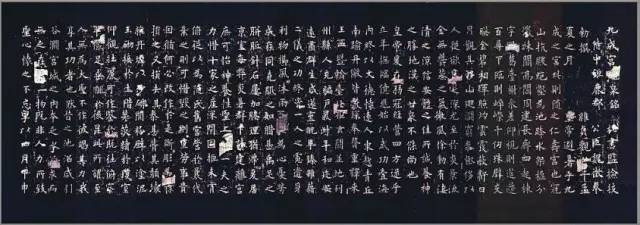 九成宮醴泉銘 秘書監檢校
侍中鉅鹿郡公臣魏徵奉
勅撰 維貞觀六年孟
夏之月 皇帝避暑乎九
成之宮此則隨之仁壽宮也冠
山抗殿絕壑為池跨水架楹分
巖竦闕高閣周建長廊四起棟
宇膠葛臺榭參差仰視則迢遞
百尋下臨則崢嶸千仞珠璧交
暎金碧相暉照灼雲霞蔽虧日
月觀其移山迴澗窮泰極侈以
人從欲良足深尤至於炎景流
金無鬱蒸之氣微風徐動有淒
清之涼信安體之佳所誠養神
之勝地漢之甘泉不能尚也
皇帝爰在弱冠經營四方逮乎
立年撫臨億兆始以武功壹海
內終以文德懷遠人東越青丘
南踰丹徼皆獻琛奉贄重譯來
王西暨輪臺北拒玄闕並地列
州縣人充編戶氣淑年和邇安
遠肅群生咸遂靈貺畢臻雖藉
二儀之功終資一人之慮遺身
利物櫛風沐雨百姓為心憂勞
成疾同堯肌之如腊甚禹足之
胼胝針石屢加腠理猶滯爰居
京室每弊炎暑群下請建離宮
庶可怡神養性聖上愛一夫之
力惜十家之產深閉固拒未肯
俯從以為隨氏舊宮營於曩代
棄之則可惜毀之則重勞事貴
因循何必改作於是斲彫為樸
損之又損去其泰甚葺其頹壞
雜丹墀以沙礫間粉壁以塗泥
玉砌接於土階茅茨續於瓊室
仰觀壯麗可作鑒於既往俯察
卑儉足垂訓於後昆此所謂至
人無為大聖不作彼竭其力我
享其功者也然昔之池沼咸引
谷澗宮城之內本乏水源求而
無之在乎一物既非人力所致
聖心懷之不忘粵以四月甲申